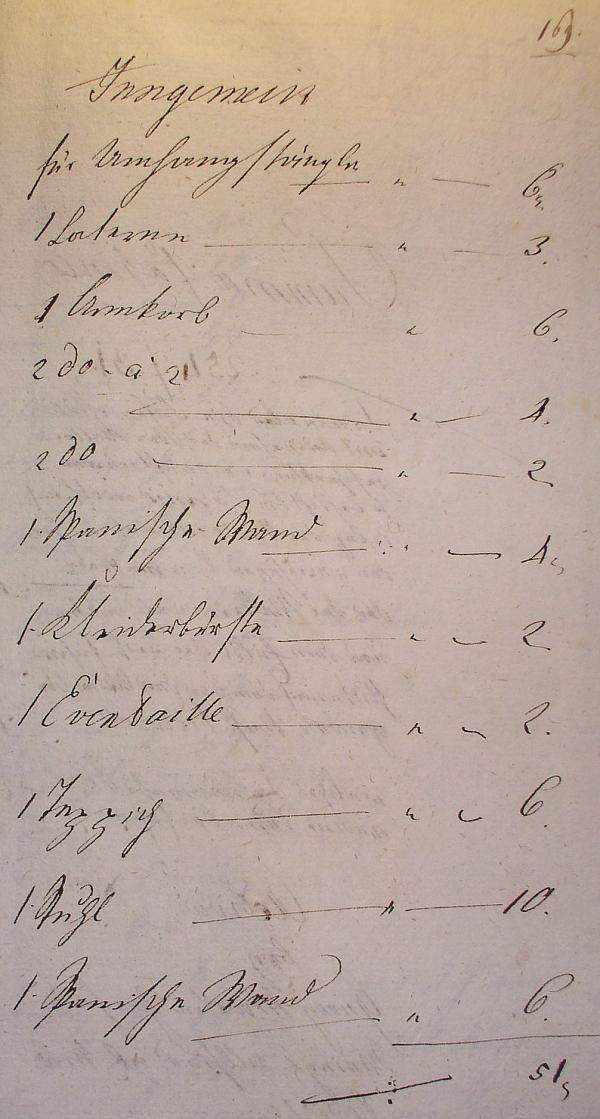 169.
Inngemein
für Umhangstängle " — 6.
1 Laterne " — 3.
1 Armkorb " 6.
2 do. a 2
" — 4.
2 do " — 2
1. Spanische Wand " — 4.
1. Kleiderbürste " — 2
1 Evendaille " — 2.
1 Teppich " — 6.
1. Stuhl " — 10.
1. Spanische Wand " 6.
51.